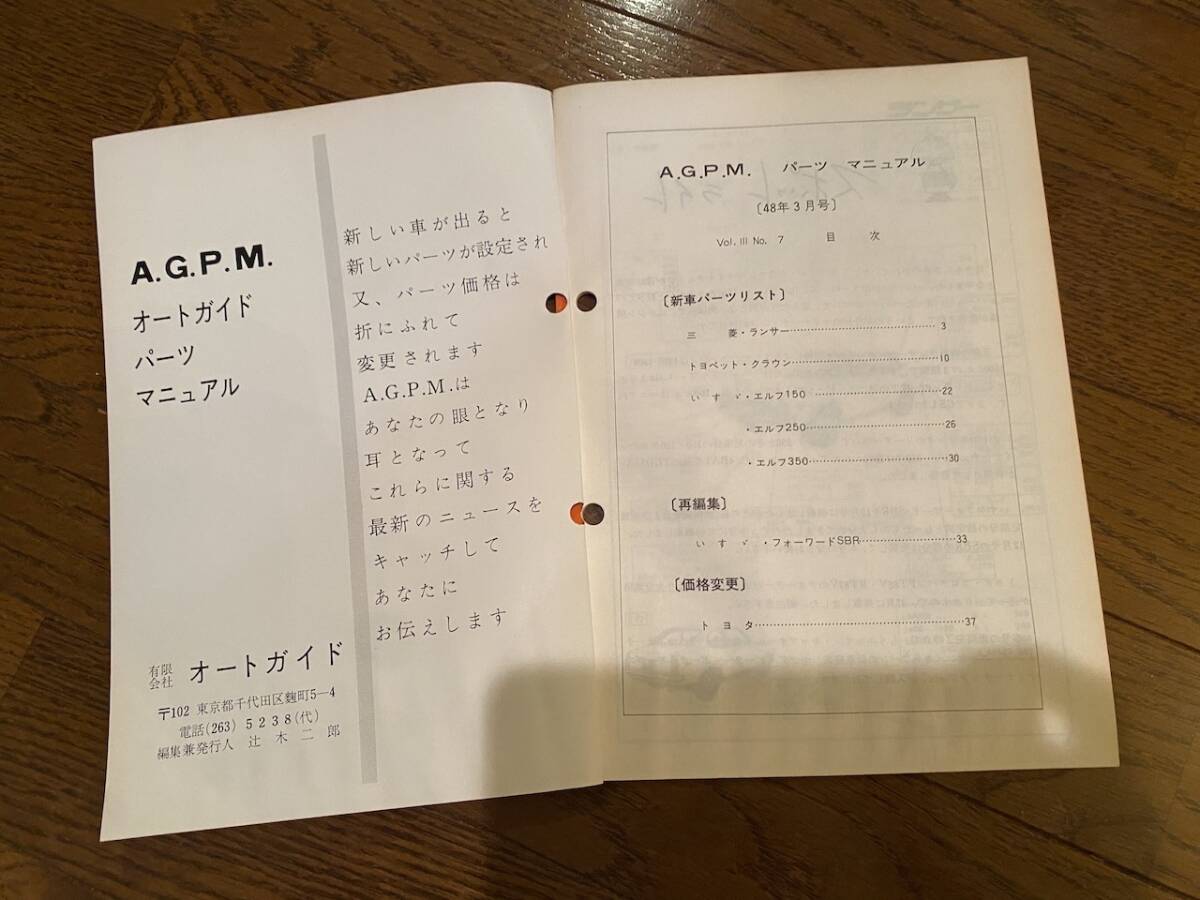 A.G.P.M.
オートガイド
パーツ
マニュアル
有限会社 オートガイド
〒102 東京都千代田区麹町5—4
電話(263) 5 2 3 8 (代)
編集兼発行人 辻 木 二 郎
新しい車が出ると
新しいパーツが設定され
又、パーツ価格は
折にふれて
変更されます
A.G.P.M.は
あなたの眼となり
耳となって
これらに関する
最新のニュースを
キャッチして
あなたに
お伝えします
A.G.P.M. パーツ マニュアル
〔48年3月号〕
Vol. III No. 7 目 次
〔新車パーツリスト〕
三 菱・ランサー……………………………………3
トヨペット・クラウン……………………………………10
い す ゞ・エルフ150 ………………………………22
・エルフ250…………………………………26
・エルフ350…………………………………30
〔再編集〕
い す ゞ ・フォーワードSBR………………………33
〔価格変更〕
ト ヨ タ……………………………………………………37